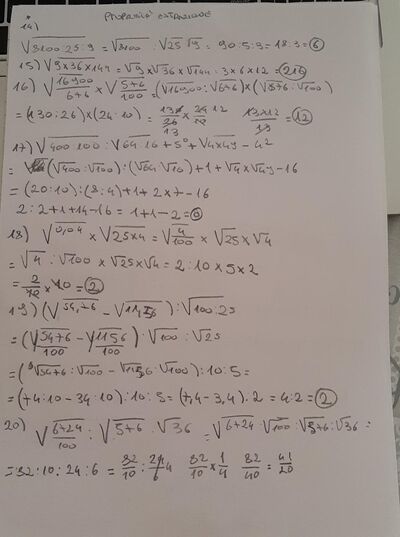 PROPRIETÀ ESTRAZIONE
14)
√8100:25:9 = √8100 : √25 √9 = 90:5:3 = 18:3 = 6
15) √9×36×144 = √9 × √36 × √144 : 3×6×12 = 216
16) √16900/676 × √576/100 = (√16900:√676)×(√576:√100)
= (130:26)×(24:10) = 130/26 × 24/10 12 13×12/13 = 12
17) √400:100 : √64:16 + 5° + √4×49 - 4²
= (√400:√100):(√64:√16)+1+√4×√49-16
= (20:10):(8:4)+1+2×7-16
2:2+1+14-16 = 1+1-2 = 0
18) √0,04 × √25×4 = √4/100 × √25 × √4
= √4 : √100 × √25×√4 = 2:10×5×2
= 2/10 × 10 = 2
19) (√54,76 - √11,56) : √100:25
= (√5476/100 - √1156/100) : √100 : √25
= (√5476:√100 - √1156:√100):10:5=
= (74:10-34:10):10:5 = (7,4-3,4):2 = 4:2 = 2
20) √6724/100 : √576 : √36 = √6724:√100:√576:√36 =
= 82:10:24:6 = 82/10 : 24/6 4 82/10 × 1/4 82/40 = 41/20